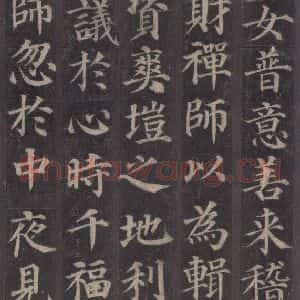 女普意善来稽
財禪師以為輯
資爽塏之地利
議於心時千福
師忽於中夜見